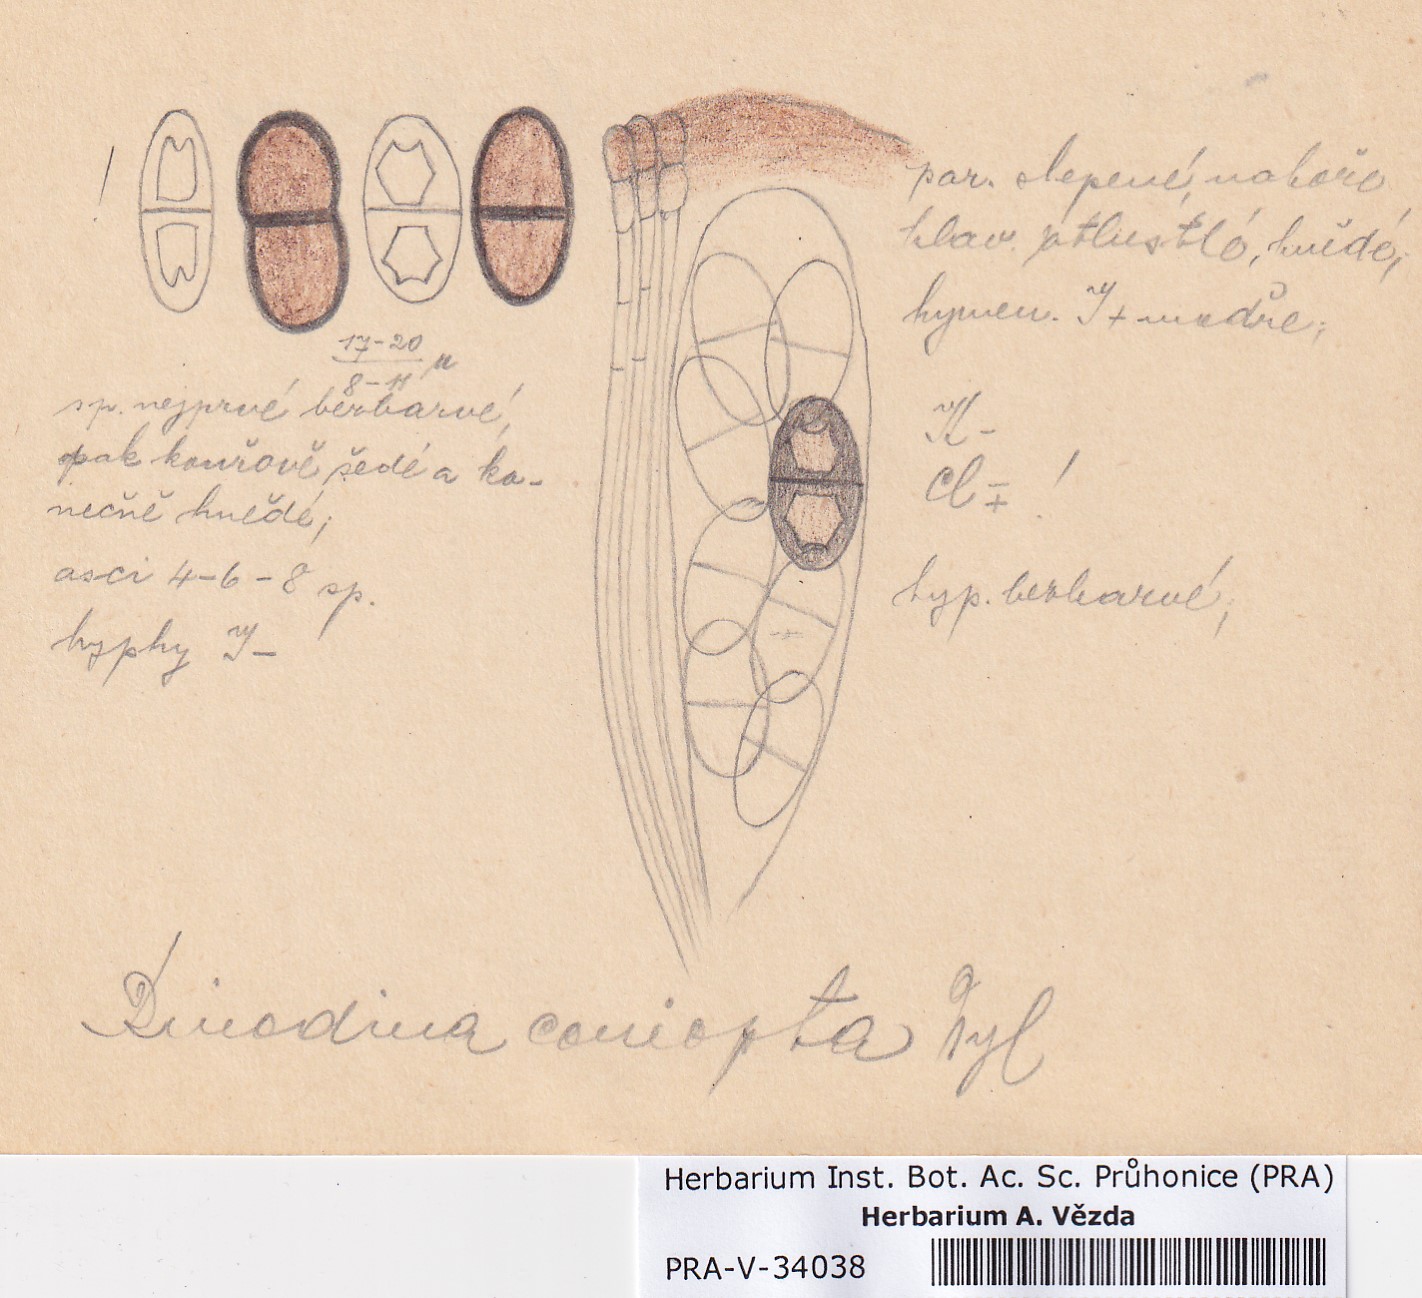 !
17-20
8-11 µ
sp. nejprvé bezbarvé,
pak kouřově šedé a ko-
nečně hnědé;
asci 4-6-8 sp.
hyphy J-
par. slepené, nahoře
hlav. ztlustlé, hnědé,
hymen. J + modře;
K -
Cl ∓ !
hyp. bezbarvé,
Rinodina coniopta Nyl
Herbarium Inst. Bot. Ac. Sc. Průhonice (PRA)
Herbarium A. Vězda
PRA-V-34038